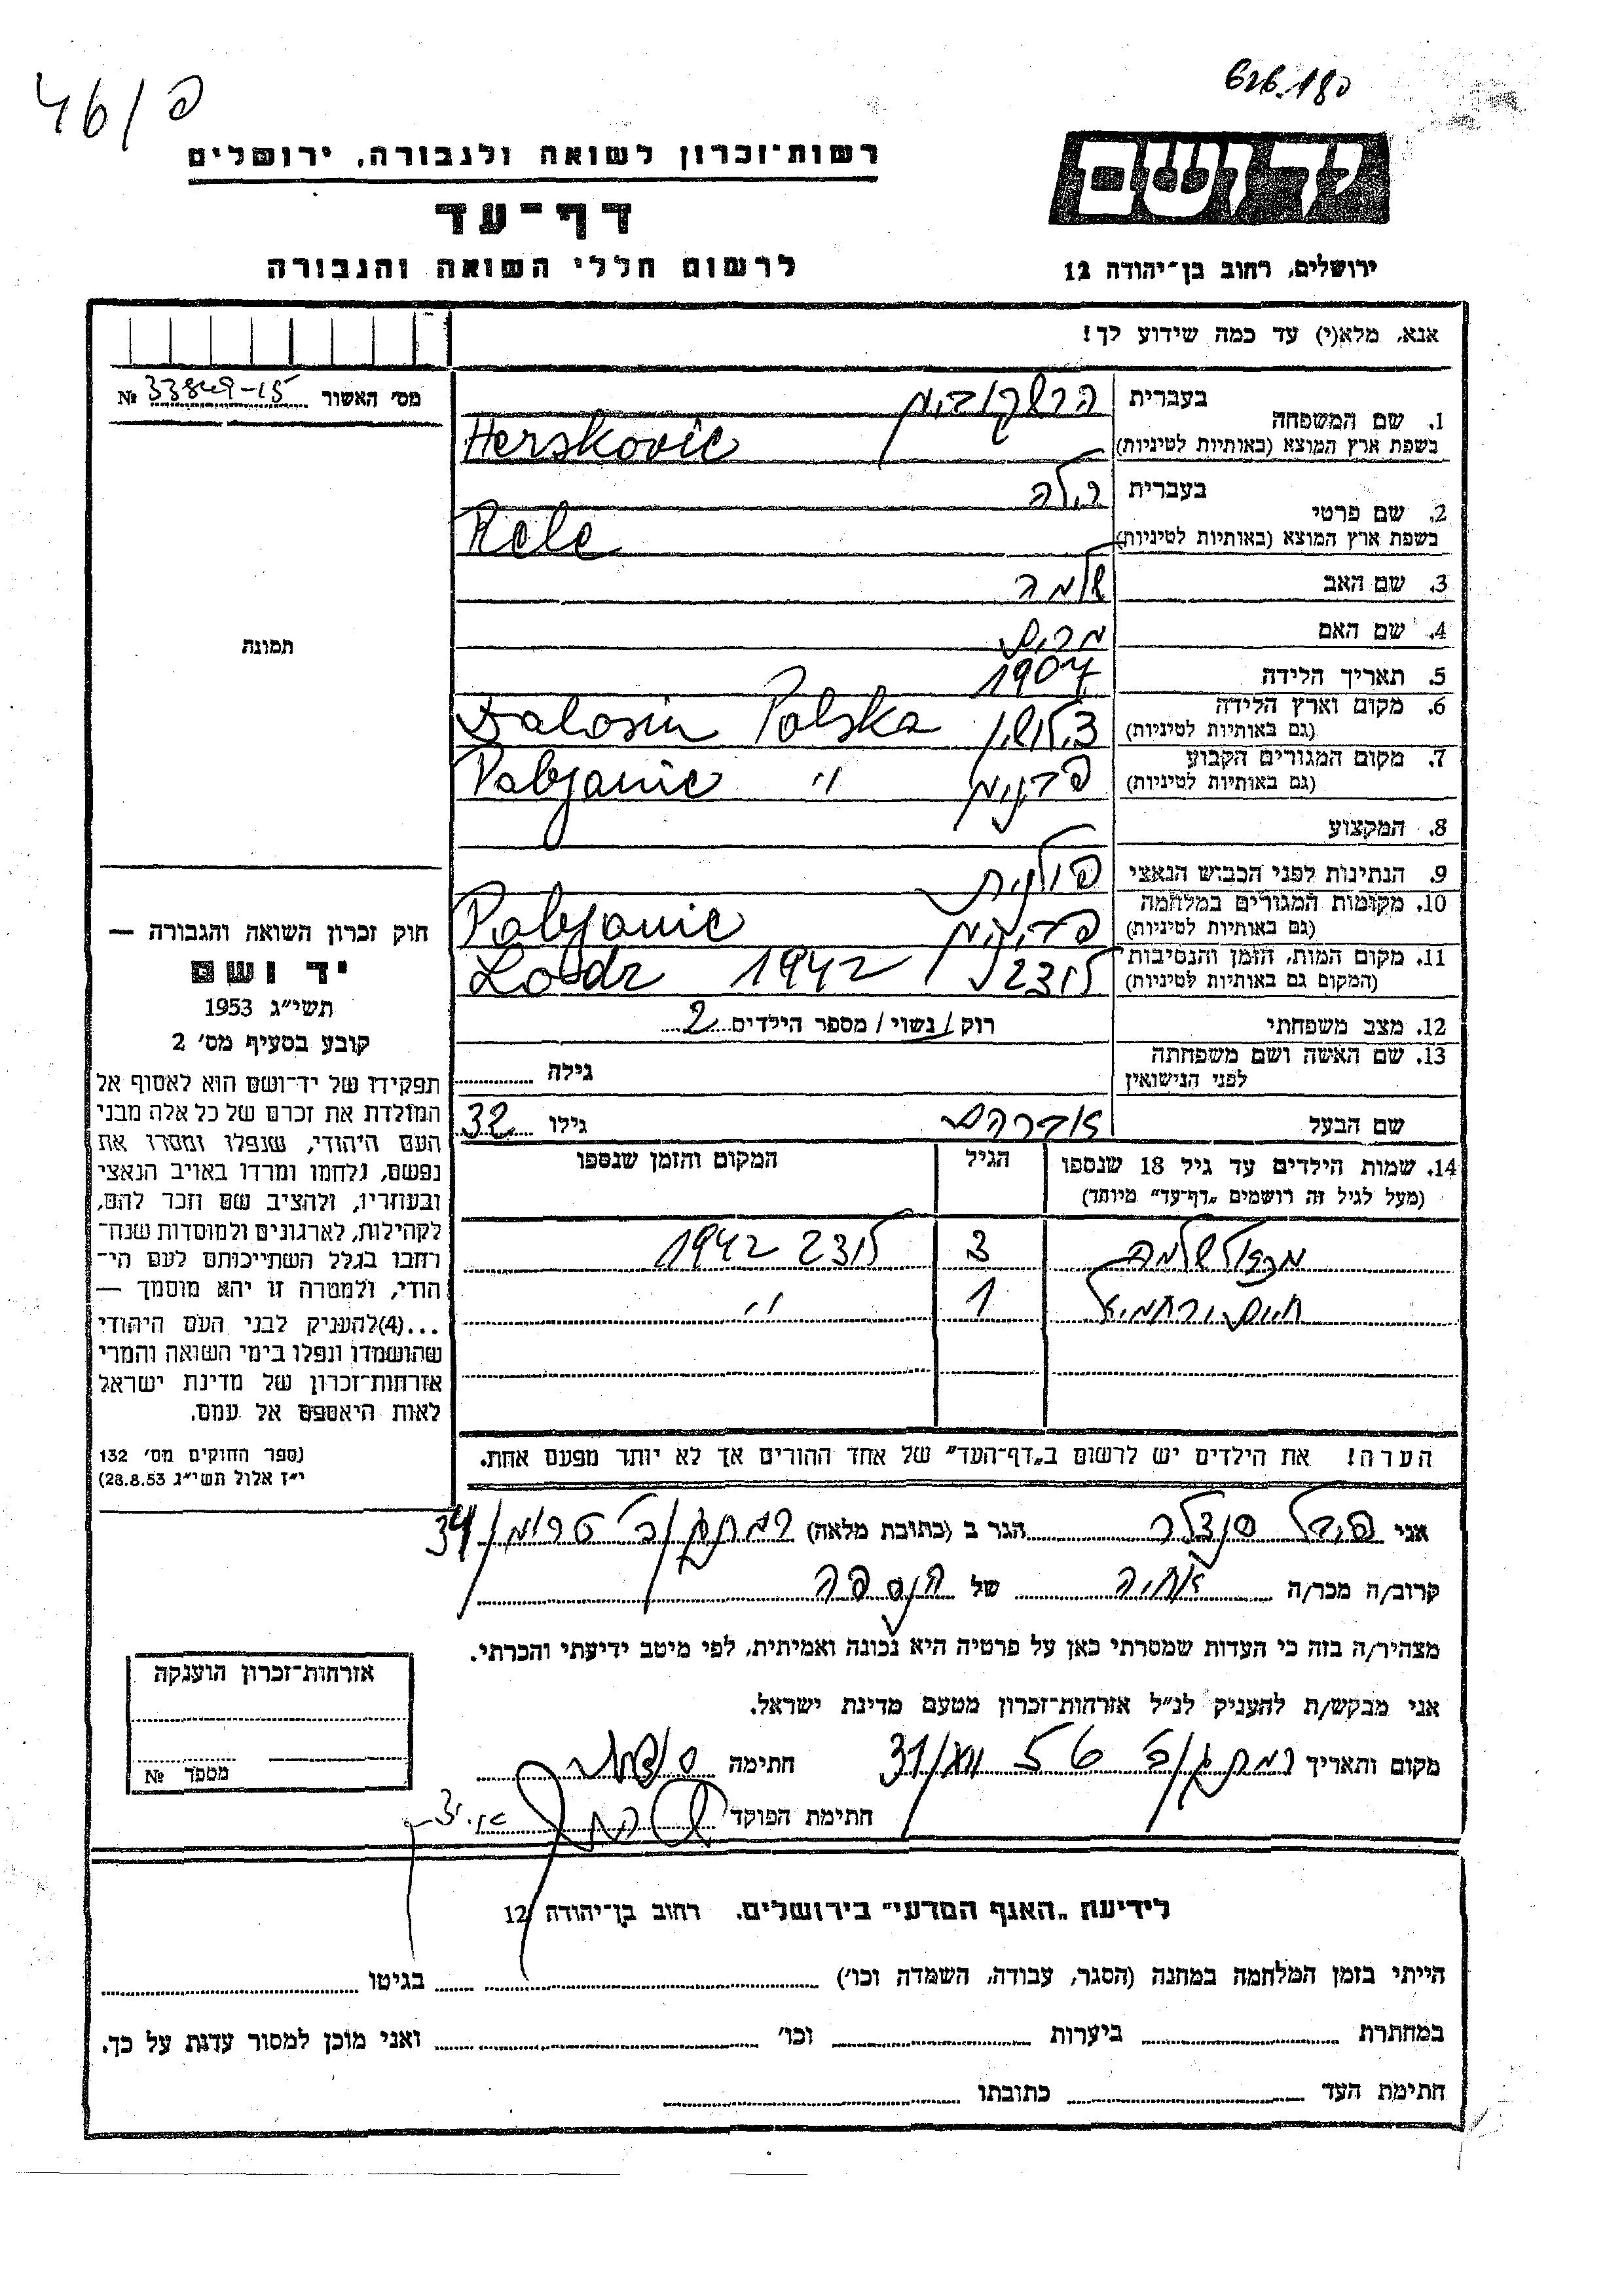 פ/46
626.180
רשות־זכרון לשואה ולגבורה, ירושלים
דף־עד
לרשום חללי השואה והגבורה
יד ושם
ירושלים, רחוב בן־יהודה 12
אנא, מלא(י) עד כמה שידוע לך!
מס' האשור № 33849-15
1. שם המשפחה בעברית הרשקוביץ
בשפת ארץ המוצא (באותיות לטיניות) Herskovic
2. שם פרטי בעברית רילה
בשפת ארץ המוצא (באותיות לטיניות) Rele
3. שם האב שלמה
4. שם האם מרים
5. תאריך הלידה 1907
6. מקום וארץ הלידה
(גם באותיות לטיניות) Polska
7. מקום המגורים הקבוע
(גם באותיות לטיניות) Pabjanic "
8. המקצוע
9. הנתינות לפני הכבוש הנאצי פולנית
10. מקומות המגורים במלחמה
(גם באותיות לטיניות) Pabjanic
11. מקום המות, הזמן והנסיבות
(המקום גם באותיות לטיניות) לודז' Lodz 1942
12. מצב משפחתי רוק/נשוי/מספר הילדים 2
13. שם האשה ושם משפחתה
לפני הנישואין
גילה
שם הבעל אברהם גילו 32
14. שמות הילדים עד גיל 18 שנספו הגיל המקום והזמן שנספו
(מעל לגיל זה רושמים „דף־עד" מיוחד)
שלמה 3 לודז 1942
חיים ירחמיאל 1 "
הערה! את הילדים יש לרשום ב„דף־העד" של אחד ההורים אך לא יותר מפעם אחת.
תמונה
חוק זכרון השואה והגבורה —
יד ושם
תשי"ג 1953
קובע בסעיף מס' 2
תפקידו של יד־ושם הוא לאסוף אל
המולדת את זכרם של כל אלה מבני
העם היהודי, שנפלו ומסרו את
נפשם, נלחמו ומרדו באויב הנאצי
ובעוזריו, ולהציב שם וזכר להם,
לקהילות, לארגונים ולמוסדות שנח־
רחבו בגלל השתייכותם לעם הי־
הודי, ולמטרה זו יהא מוסמך —
...(4)להעניק לבני העם היהודי
שהושמדו ונפלו בימי השואה והמרי
אזרחות־זכרון של מדינת ישראל
לאות היאספם אל עמם.
(ספר החוקים מס' 132
י"ז אלול תשי"ג 28.8.53)
אני הגר ב (כתובת מלאה) 34
קרוב/ה מכר/ה אחיה של הנספה
מצהיר/ה בזה כי העדות שמסרתי כאן על פרטיה היא נכונה ואמיתית, לפי מיטב ידיעתי והכרתי.
אני מבקש/ת להעניק לנ"ל אזרחות־זכרון מטעם מדינת ישראל.
מקום ותאריך חתימה
חתימת הפוקד
אזרחות־זכרון הוענקה
מספר №
לידיעת „האגף המדעי" בירושלים, רחוב בן־יהודה 12
הייתי בזמן המלחמה במחנה (הסגר, עבודה, השמדה וכו') בגיטו
במחתרת ביערות וכו' ואני מוכן למסור עדות על כך.
חתימת העד כתובתו